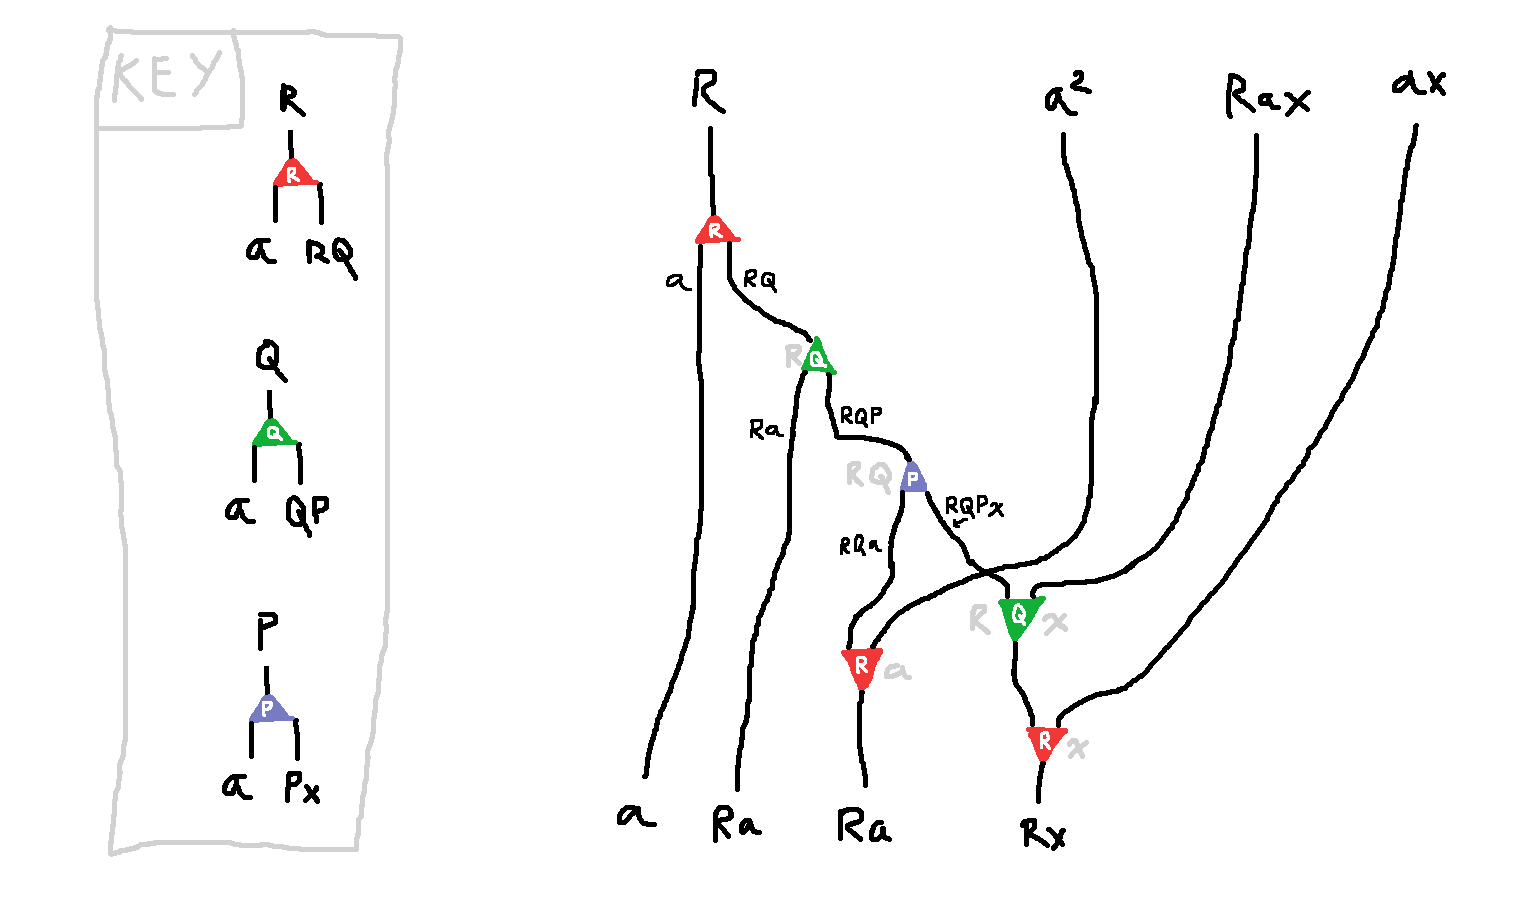 KEY
R
R
a RQ
Q
Q
a QP
P
P
a Px
R a² Rax ax
R
a RQ
R Q
Ra RQP
RQ P
RQa RQPx
R Q x
R a
R x
a Ra Ra Rx